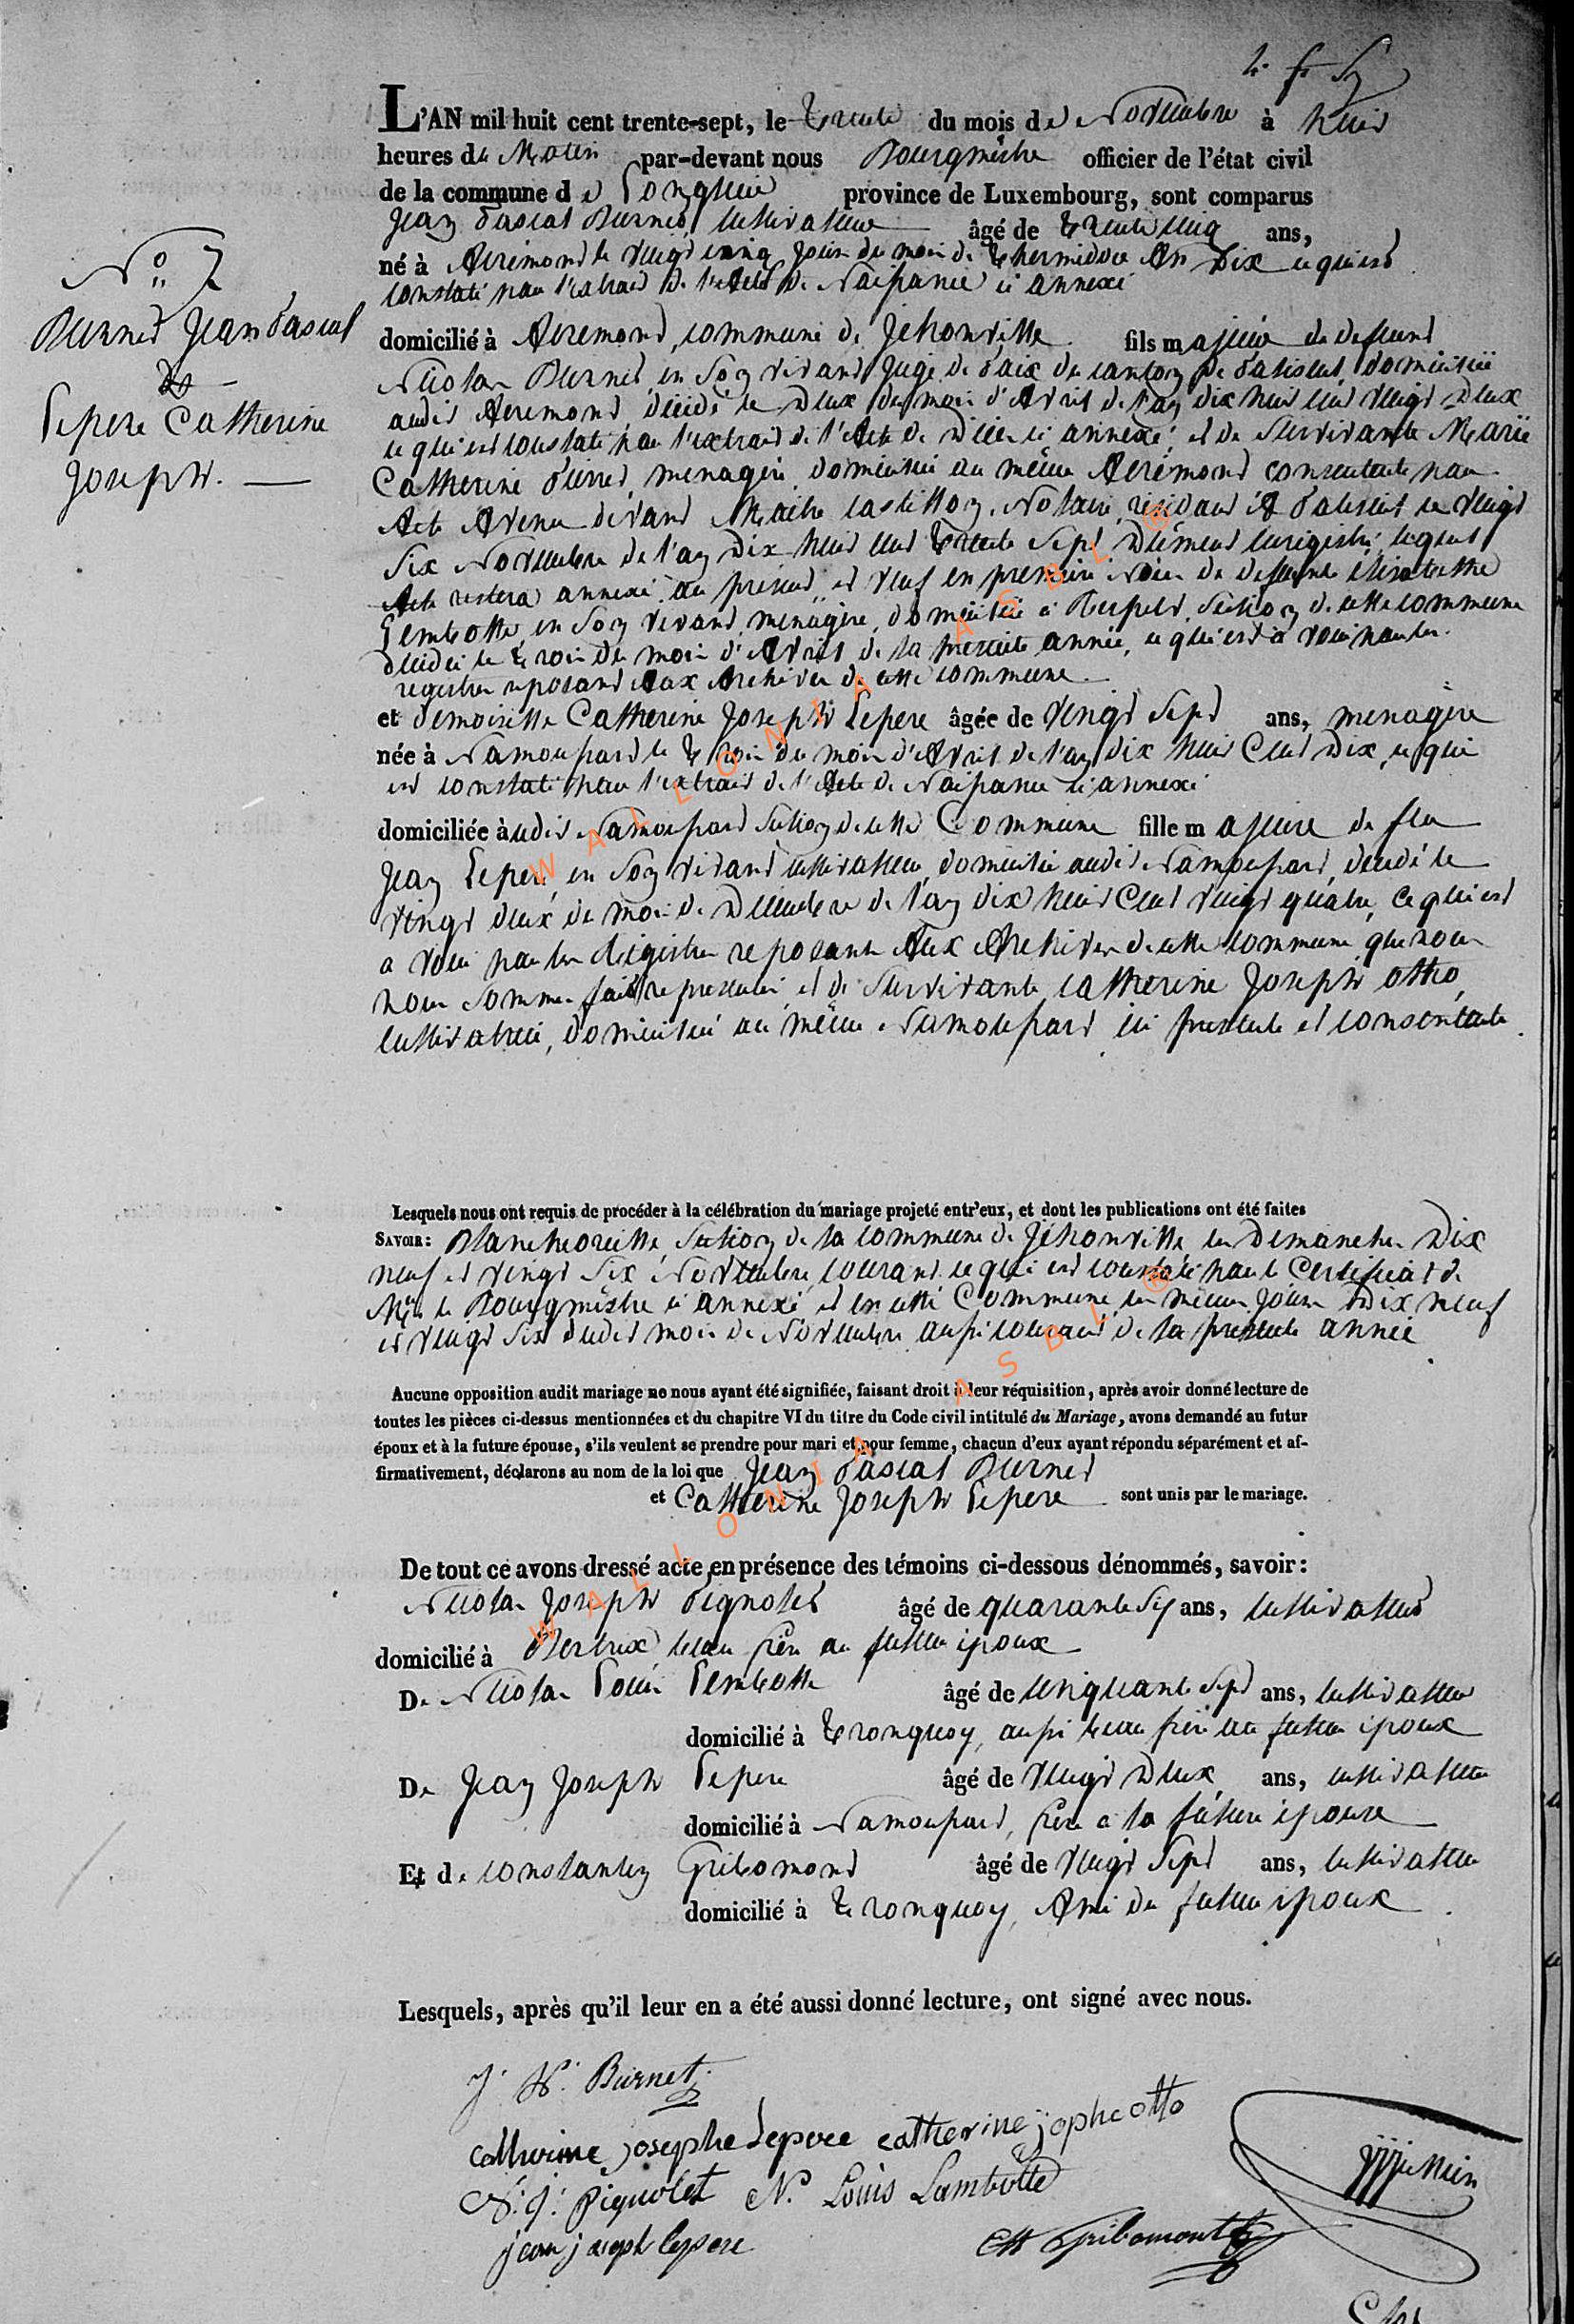 L'AN mil huit cent trente-sept, le trente du mois de Novembre à huit
heures du Matin par-devant nous Bourgmestre officier de l'état civil
de la commune de Longlier province de Luxembourg, sont comparus
Jean Pascal Burnet, cultivateur âgé de trente cinq ans,
né à Acremont le vingt cinq jour du mois de Thermidor An Dix ce qui est
constaté par l'extrait de l'Acte de Naissance ci annexé
N° 7
Burnet Jean Pascal
&
Lepere Catherine
Joseph.
domicilié à Acremont, commune de Jehonville fils majeur de deffunt
Nicolas Burnet en son vivant Juge de Paix du canton de Paliseul, domicilié
audit Acremont, décédé le deux du mois d'Avril de l'an dix huit cent vingt deux
ce qui est constaté par l'extrait de l'Acte de Décès ci annexé, et de survivante Marie
Catherine Pierret, menagère, domiciliée au même Acremont consentante par
Acte Avenu devant Maitre Castilhon, Notaire, résidant à Paliseul le vingt
six Novembre de l'an dix huit cent trente sept Dûment enregistré, lequel
Acte restera annexé au présent, et veuf en première Noces de deffunte Elisabethe
Lembotte, en son vivant menagère, domiciliée à Respelt, section de cette commune
décédée le trois du mois d'Avril de la présente année, ce qui est à voir par les
registres reposant aux Archives de cette commune
et demoiselle Catherine Joseph Lepere âgée de vingt sept ans, menagère
née à Namoussart le trois du mois d'Avril de l'an dix huit Cent Dix, ce qui
est constaté par l'extrait de l'Acte de Naissance ci annexé
domiciliée àudit Namoussart section de cette Commune fille majeure de feu
Jean Lepere, en son vivant cultivateur, domicilié audit Namoussart, décédé le
vingt deux du mois de Décembre de l'an dix huit Cent vingt quatre, ce qui est
a voir par les Régistres reposants Aux Archives de cette commune, que nous
nous sommes fait représenter, et de survivante Catherine Joseph Otto,
cultivatrice, domiciliée au même Namoussart ici présente et consentante.
Lesquels nous ont requis de procéder à la célébration du mariage projeté entr'eux, et dont les publications ont été faites
SAVOIR: Blancheoreille, section de la commune de Jéhonville les Dimanches Dix
neuf et vingt six Novembre courant ce qui est constaté par le Certificat de
Mr le Bourgmestre ci annexé et en cette Commune les mêmes jours Dix neuf
et vingt six dudit mois de Novembre aussi courant de la présente année
Aucune opposition audit mariage ne nous ayant été signifiée, faisant droit à leur réquisition, après avoir donné lecture de
toutes les pièces ci-dessus mentionnées et du chapitre VI du titre du Code civil intitulé du Mariage, avons demandé au futur
époux et à la future épouse, s'ils veulent se prendre pour mari et pour femme, chacun d'eux ayant répondu séparément et af-
firmativement, déclarons au nom de la loi que Jean Pascal Burnet
et Catherine Joseph Lepere sont unis par le mariage.
De tout ce avons dressé acte en présence des témoins ci-dessous dénommés, savoir:
Nicolas Joseph Pignolet âgé de quarante six ans, cultivateur
domicilié à Bertrix beau frère au futur époux
De Nicolas Louis Lembotte âgé de cinquante sept ans, cultivateur
domicilié à Tronquoy, aussi beau frère au futur époux
De Jean Joseph Lepere âgé de vingt Deux ans, cultivateur
domicilié à Namoussart, frère a la future épouse
Et de Constantin Gribomont âgé de vingt sept ans, cultivateur
domicilié à Tronquoy, Ami du futur époux
Lesquels, après qu'il leur en a été aussi donné lecture, ont signé avec nous.
Burnet
Catherine josephe Lepere catherine jophe otto
N. J. Pignolet N. Louis Lambotte
jean joseph lepere Gribomont
WALLONIA ASBL ®
WALLONIA ASBL ®